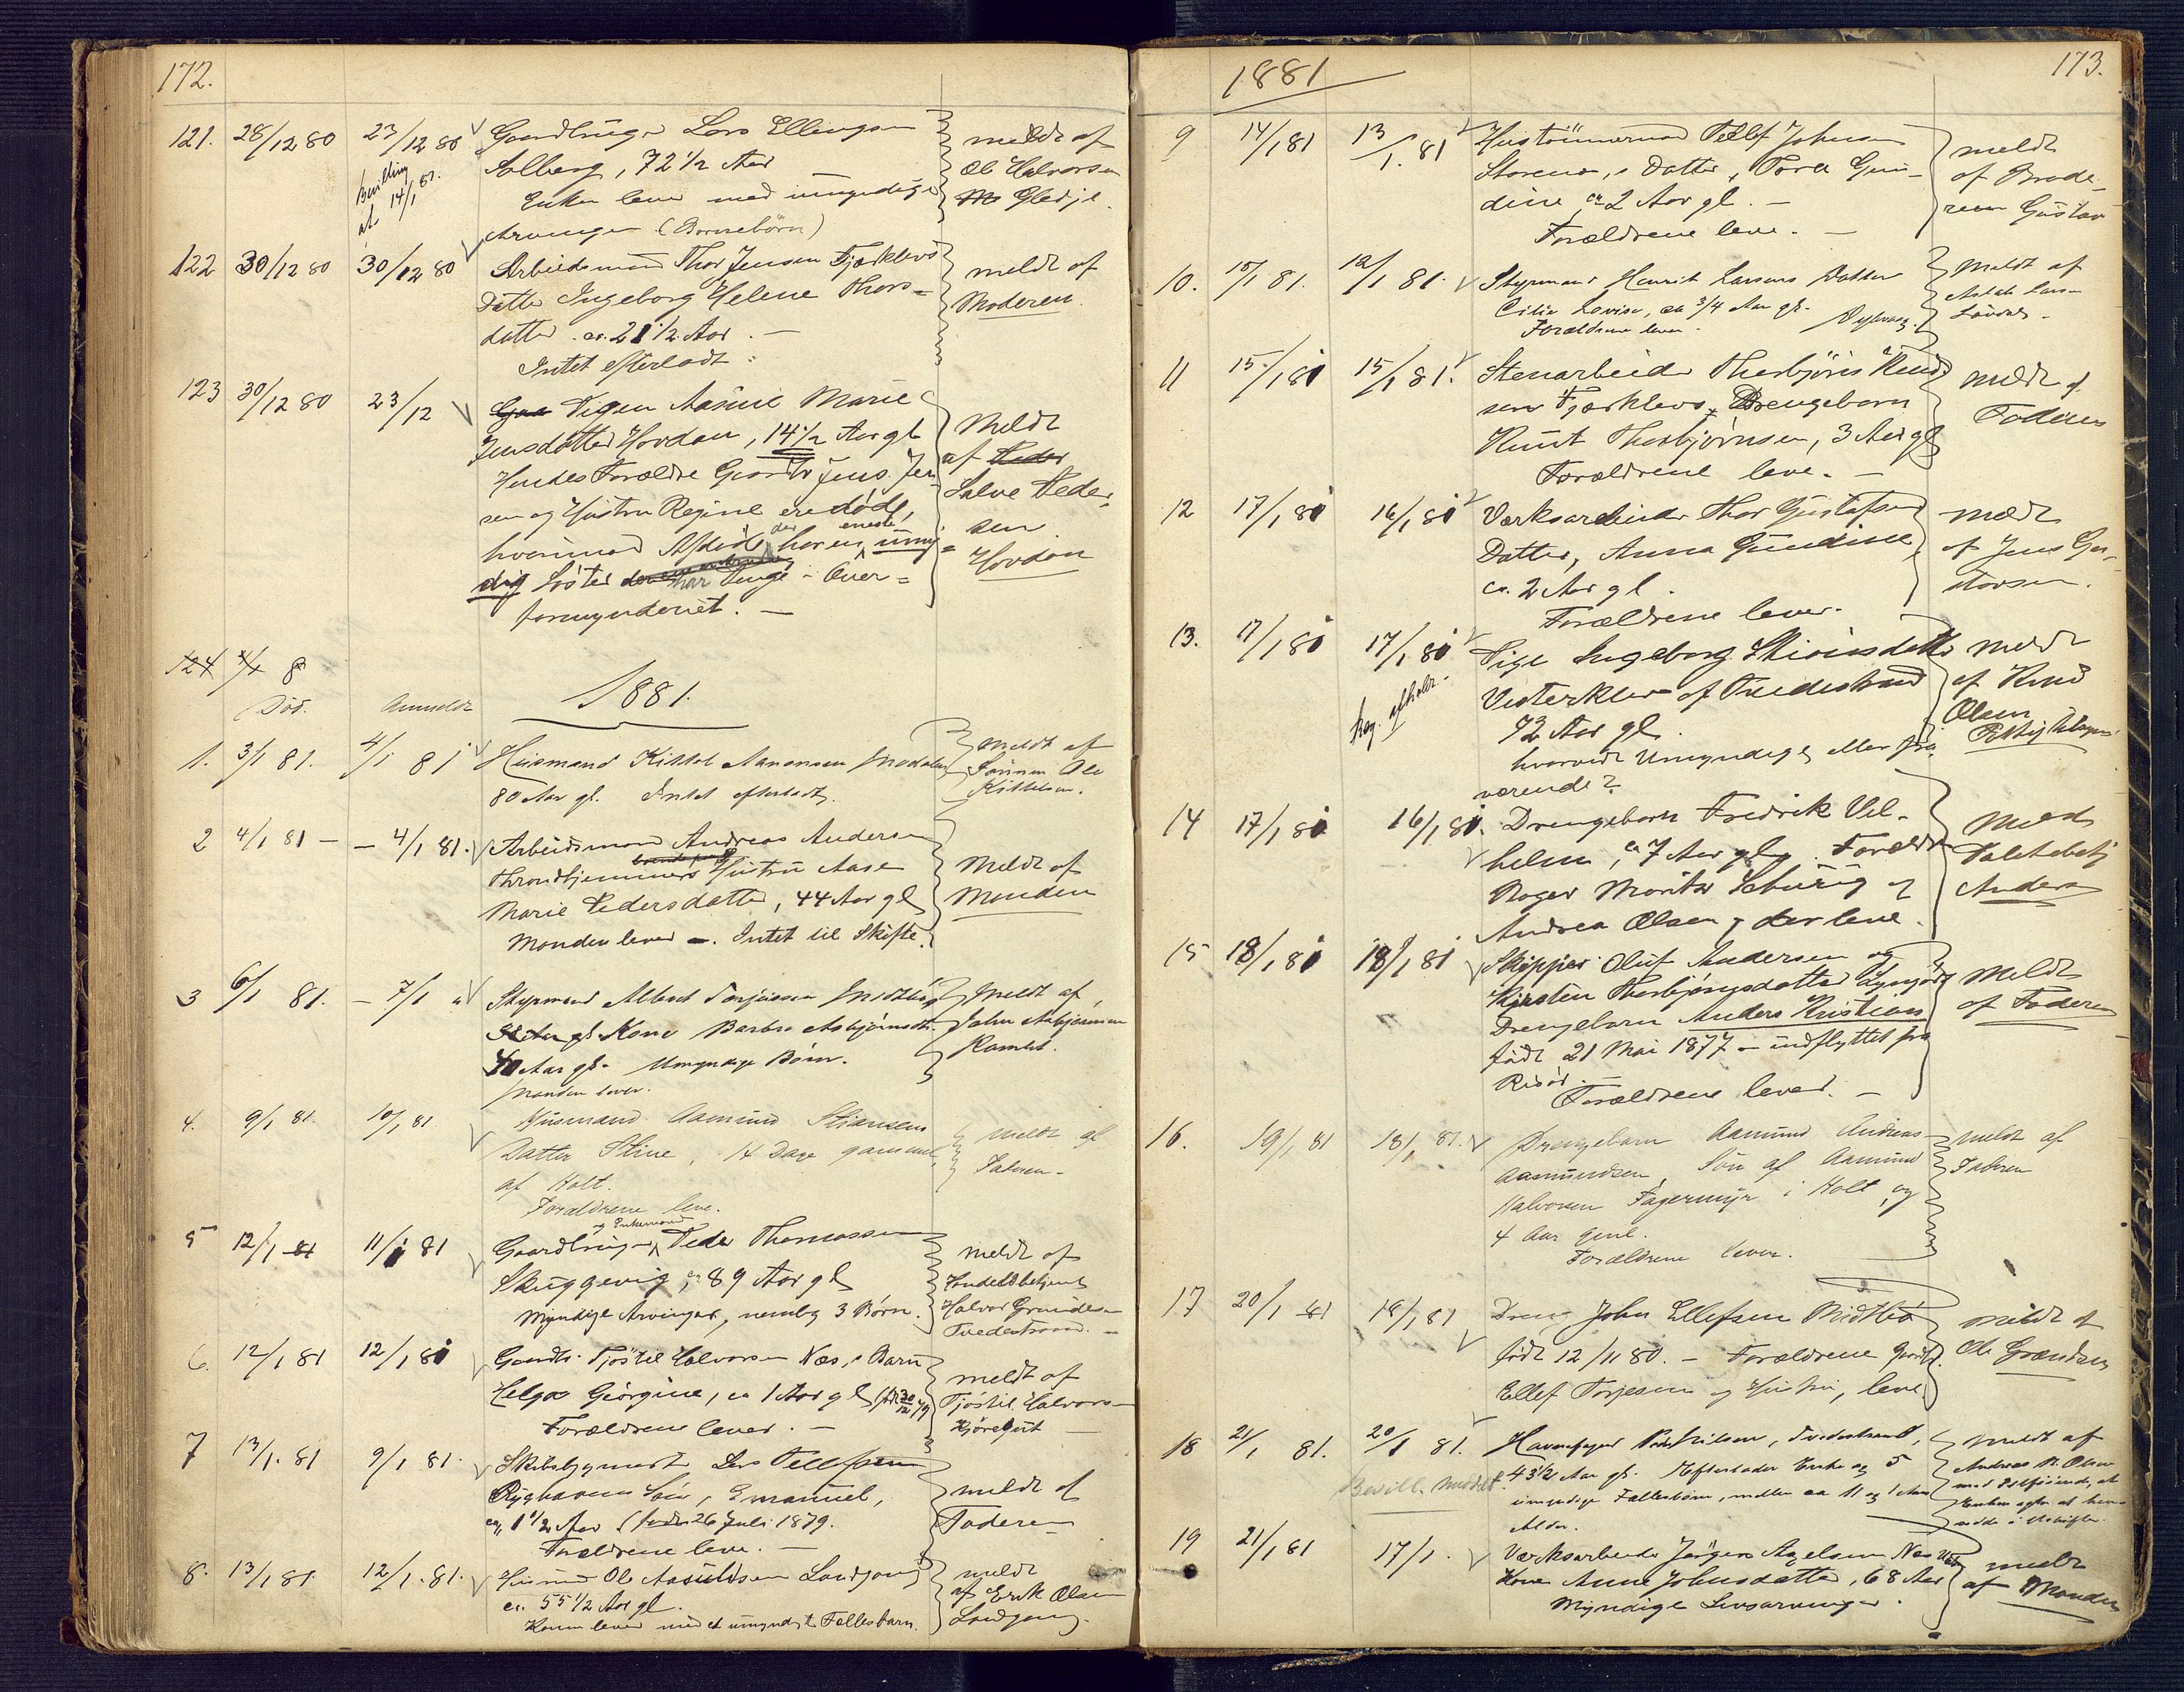 172.
121. 28/12 80 23/12 80 Gaardbruger Lars Ellingsen meldt af
Solberg, 72 1/2 Aar Ole Halvorsen
Bevilling 14/1 81. Enken lever med umyndige Gledje.
Arvinger (Barnebørn)
122 30/12 80 30/12 80 Arbeidsmand Thor Jensen Fjærklevs meldt af
Datter Ingeborg Helene Thors= Moderen.
datter ca. 21 1/2 Aar. —
Intet efterladt.
123 30/12 80 23/12 Pigen Aasine Marie Meldt
Jensdatter Hovdan, 14 1/2 Aar gl af
Hendes Forældre Jens Jen Salve Peder
sen og Hustru Regine ere døde, sen
hvorimod Afdøde har en eneste umyn= Hovdan
dig Søster der har Penge i Over=
formynderiet. —
124 4/1 8
Død. Anmeldt 1881.
1. 3/1 81. 4/1 81 Husmand Kittel Aanonsen meldt af
80 Aar gl. Intet efterladt. Sønnen Ole
Kittelsen.
2 4/1 81 — — 4/1 81. Arbeidsmand Andreas Andersen
Throndhjemmers Hustru Aase Meldt af
Marie Pedersdatter, 44 Aar gl Manden
Manden lever —. Intet til Skifte.
3 6/1 81. — 7/1 Styrmand Albert Terjesen Midtbø meldt af
Kone Barbra Asbjørnsdtr. John Asbjørnsen
40 Aar gl. Umyndige Børn. Ramlet.
Manden lever.
4. 9/1 81. 10/1 81 Husmand Aamund Stiansens meldt af
Datter Stine, 14 Dage gammel, Faderen-
af Holt.
Forældrene leve.
5 12/1 81 11/1 81 Gaardbruger og Enkemand Peder Thomassen meldt af
Skuggevig, ca 89 Aar gl Handelsbetjent
Myndige Arvinger, nemlig 3 Børn. Halvor Grundesen
Tvedestrand. —
6. 12/1 81 12/1 81 Gaardbr. Tjøstel Halvorsen Næs, s Barn meldt af
Helga Georgine, ca 1 Aar gl (født 30/12 79 Tjøstel Halvorsen
Forældrene lever. — Kjørekut
7 13/1. 81 9/1 81. Skibsbygmester Lars Tellefsen meldt af
Ryghavens Søn, Emanuel, Faderen
ca. 1 1/2 Aar (født 26 Juli 1879.
Forældrene leve. —
8. 13/1 81. 12/1. 81. Husmand Ole Aasuldsen Landgang meldt
ca. 55 1/2 Aar gl. af Erik Olsen
Konen lever med et umyndigt Fællesbarn. Landgang.
1881 173.
9 14/1 81 13/1. 81 Hustømmermand Tellef Johnsen meldt
Storenes, s Datter, Thora Gun- af Brode-
dine, ca 2 Aar gl. — ren Gustav
Forældrene leve. —
10. 15/1 81. 12/1 81. Styrmand Henrik Larsens Datter Meldt af
Cilia Lovise, ca 3/4 Aar gl. Aslak Lars-
Forældrene lever. Dypvaag. Løvdal.
11 15/1 81 15/1 81. Stenarbeider Thorbjørn Knud meldt af
sen Fjærklevs Drengebarn Faderen
Knut Thorbjørnsen, 3 Aar gl
Forældrene leve. —
12 17/1 81 16/1 81 Værksarbeider Thor Gustafsens meldt
Datter, Anna Gundine af Jens Gu-
ca. 2 Aar gl. stavsen.
Forældrene lever.
13. 17/1 81 17/1 81 Pige Ingeborg Stiansdatter meldt
Vesterkleven af Tvedestrand af Knud
72 Aar gl. Olsen
hvorvidt Umyndige eller fra-
værende?
14 17/1 81 16/1 81. Drengebarn Fredrik Vil- Meldt
helm, ca 7 Aar gl. Forældre
Roger Moritz Schurig og Anders
Andrea Olsen, der leve.
15 18/1 81 18/1 81 Skipper Oluf Andersen og Meldt
Kirsten Thorbjørnsdatter Lyngør af Faderen
Drengebarn Anders Kristian
født 21 Mai 1877 — indflyttet fra
Risør. —
Forældrene lever. —
16. 19/1 81 18/1 81. Drengebarn Aamund Andreas meldt af
Aamundsen, Søn af Aamund Faderen
Halvorsen Fagermyr i Holt, og
4 Aar gml.
Forældrene lever.
17 20/1 81 18/1 81 Dreng John Ellefsen Midtbø meldt af
født 12/11 80. — Forældrene Gaardbr. Ole Grundesen
Ellef Torjesen og Hustru, leve
18 21/1 81. 20/1 81. Havnefoged Nilsen, Tvedestrand, meldt af
Bevill. meddelt 43 1/2 Aar gl. Efterlader Enke og 5 Andreas N. Olsen
umyndige Fællesbørn, mellem ca 11 og 1 Aars med Tilføiende, at
Alder. Enken agter at hen-
sidde i Uskifte.
19 21/1 81 17/1. Værksarbeider Jørgen Axelsen Næs Værk meldt
Kone Anne Johnsdatter, 68 Aar af Manden
Myndige Livsarvinger.